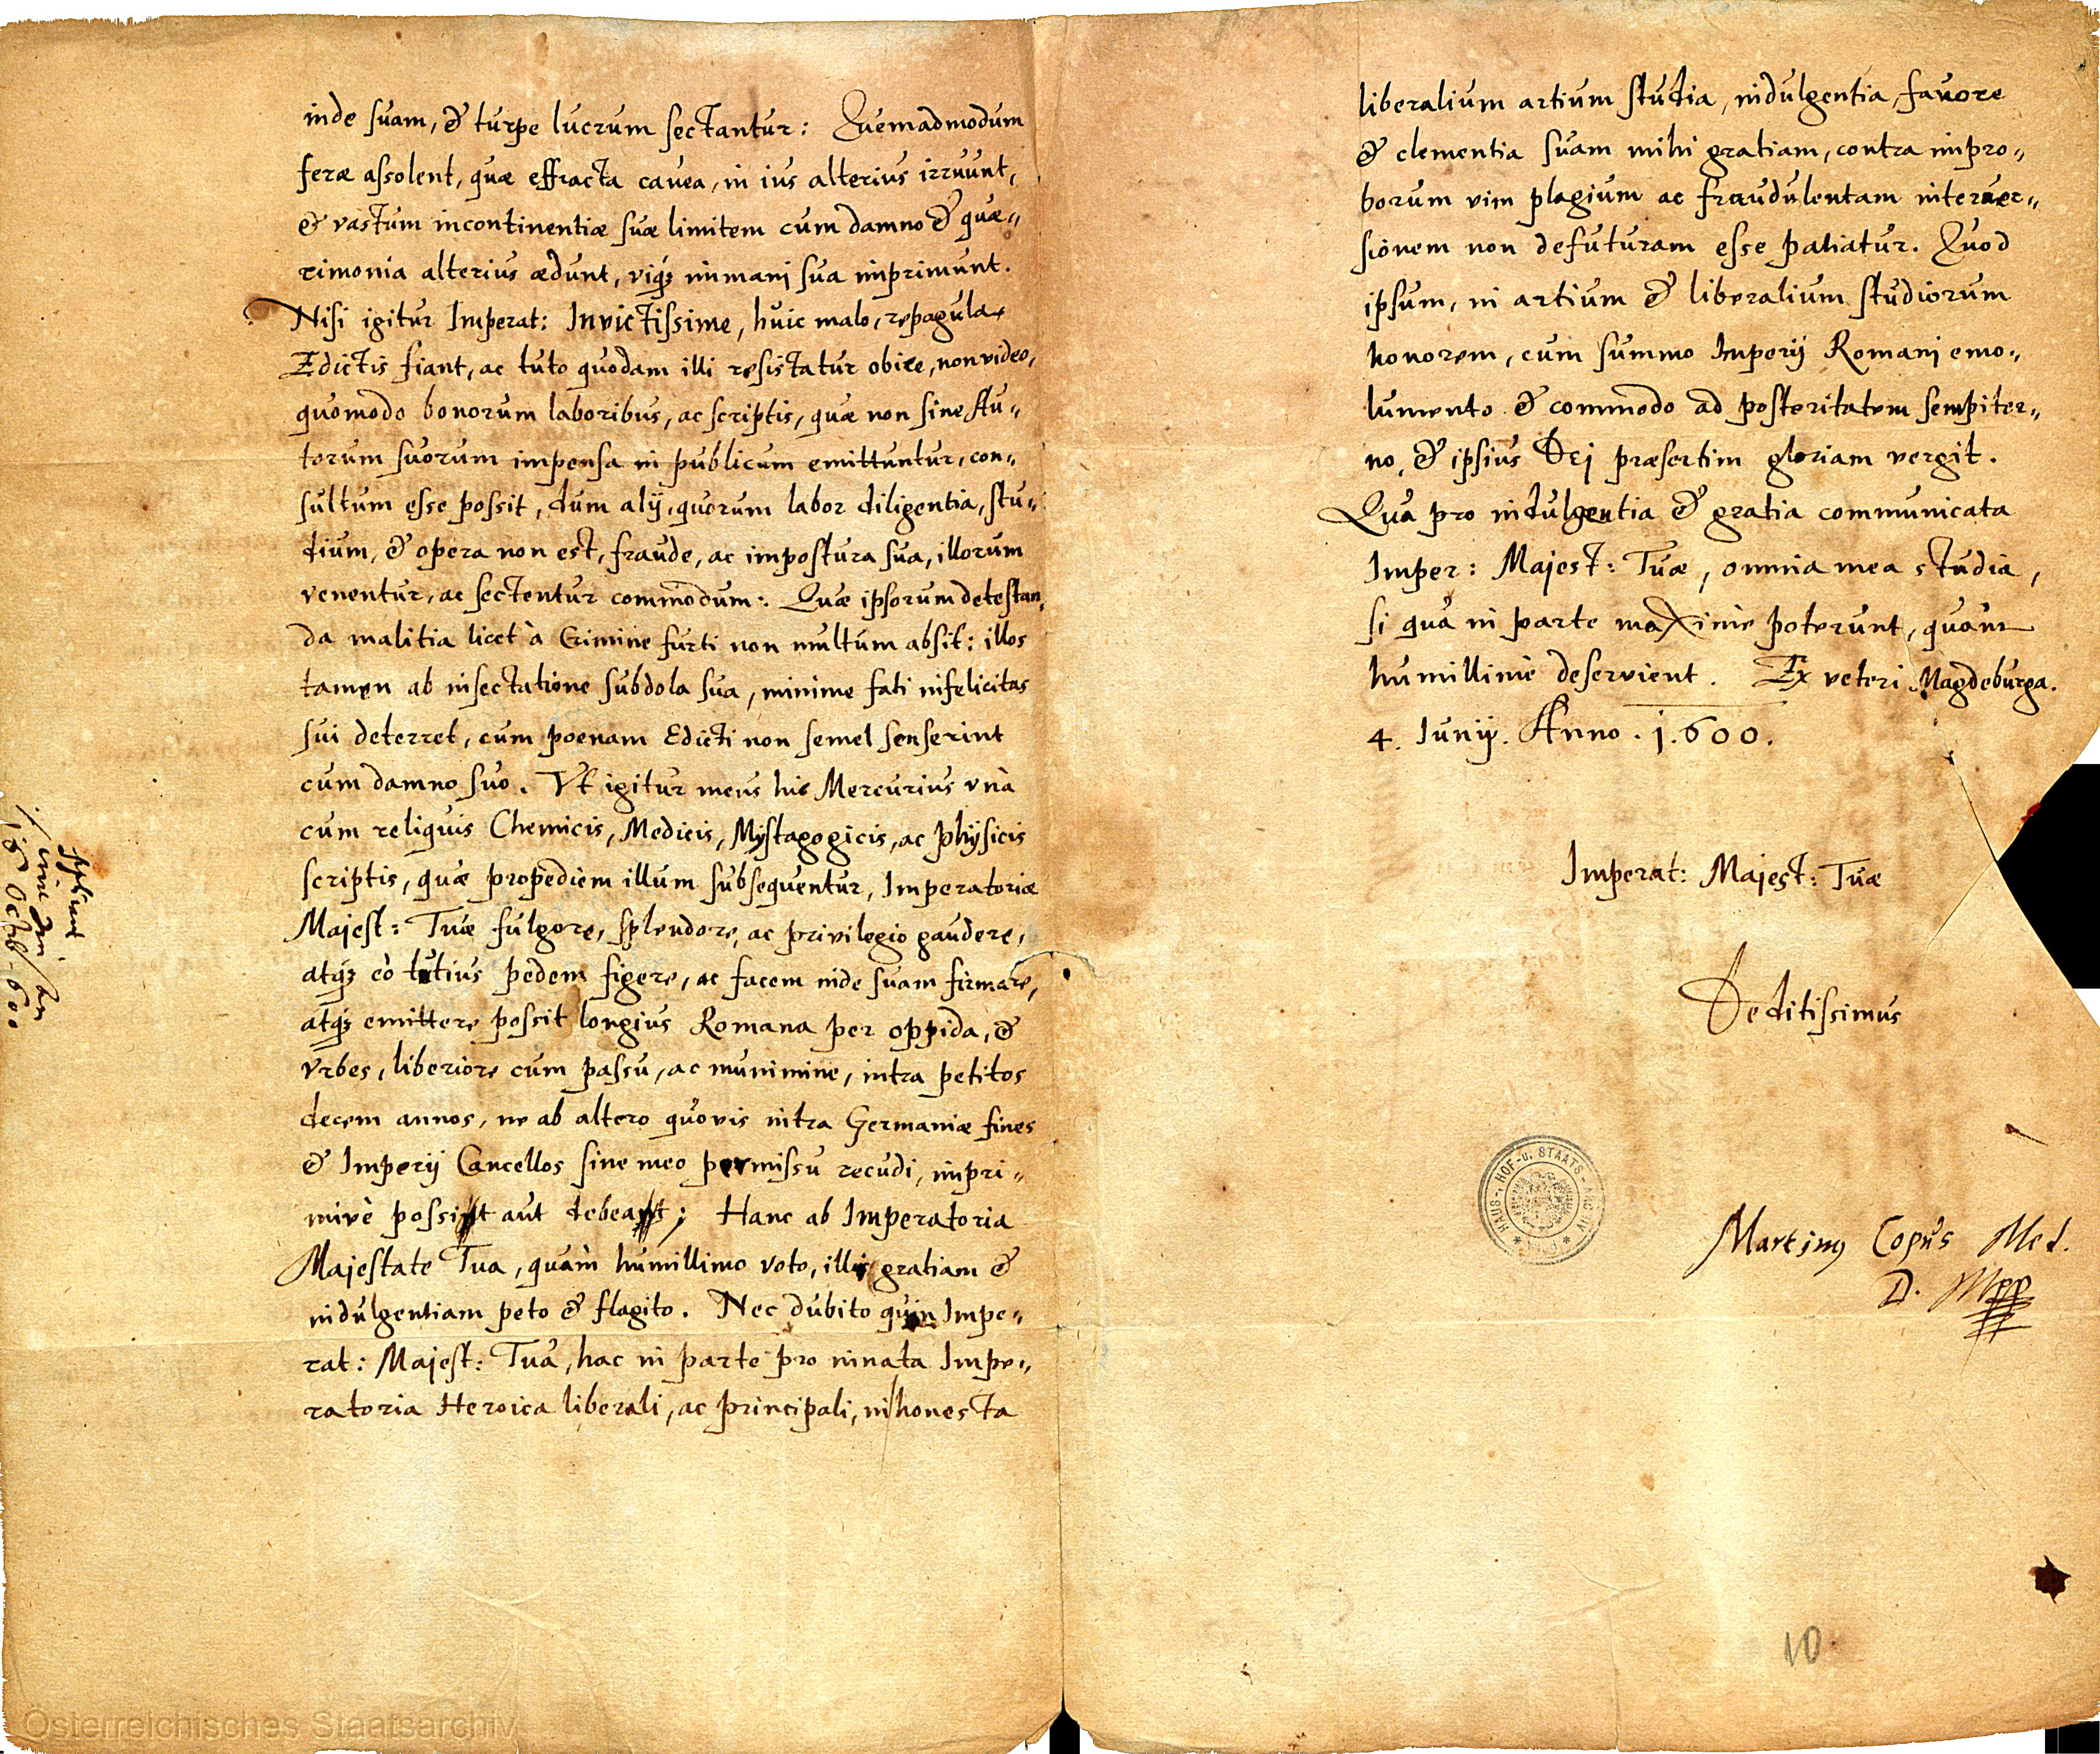 inde suam, & turpe lucrum sectantur: Quemadmodum
feræ assolent, quæ effracta cavea, in ius alterius irruunt,
& vastum incontinentiæ suæ limitem cum damno & quæ„
rimonia alterius ædunt, viq3 immani sua imprimunt.
Nisi igitur Imperat: Invictissime, huic malo, repagula
Edictis fiant, ac tuto quodam illi resistatur obice, non video,
quomodo bonorum laboribus, ac scriptis, quæ non sine Au„
torum suorum impensa in publicum emittuntur, con„
sultum esse possit, dum alij, quorum labor diligentia, stu„
dium, & opera non est, fraude, ac impostura sua, illorum
venentur, ac sectentur commodum: Quæ ipsorum detestan„
da malitia licet à Crimine furti non multum absit: illos
tamen ab insectatione subdola sua, minime fati infelicitas
sui deterret, cum poenam Edicti non semel senserint
cum damno suo. Vt igitur meus hic Mercurius vnà
cum reliquis Chemicis, Medicis, Mystagogicis, ac physicis
scriptis, quæ propediem illum subsequentur, Imperatoriæ
Majest: Tuæ fulgore, splendore, ac privilegio gaudere,
atq3 eò tutius pedem figere, ac facem inde suam firmare,
atq3 emittere possit longius Romana per oppida, &
vrbes, liberiore cum passu, ac munimine, intra petitos
decem annos, ne ab altero quovis intra Germaniæ fines
& Imperij Cancellos sine meo permissu recudi, impri„
mivè possit aut debeat; Hanc ab Imperatoria
Majestate Tua, quàm humillimo voto, illis gratiam &
indulgentiam peto & flagito. Nec dubito quin Impe„
rat: Majest: Tua, hac in parte pro innata Impe„
ratoria Heroica liberali, ac principali, in honesta
liberalium artium studia, indulgentia, favore
& clementia suam mihi gratiam, contra impro„
borum vim plagium ac fraudulentam interver„
sionem non defuturam esse patiatur. Quod
ipsum, in artium & liberalium studiorum
honorem, cum summo Imperij Romanj emo„
lumento & commodo ad posteritatem sempiter„
no, & ipsius Dej præsertim gloriam vergit.
Qua pro indulgentia & gratia communicata
Imper: Majest: Tuæ, omnia mea studia,
si qua in parte maxime poterunt, quàm
humillimè deservient. Ex veteri Magdeburga.
4. Iunij. Anno. 1.600.
Imperat: Majest: Tuæ
Deditissimus
Martinus Copus Med.
D. Mpp
HAUS-, HOF- u. STAATS-ARCHIV
10
Österreichisches Staatsarchiv